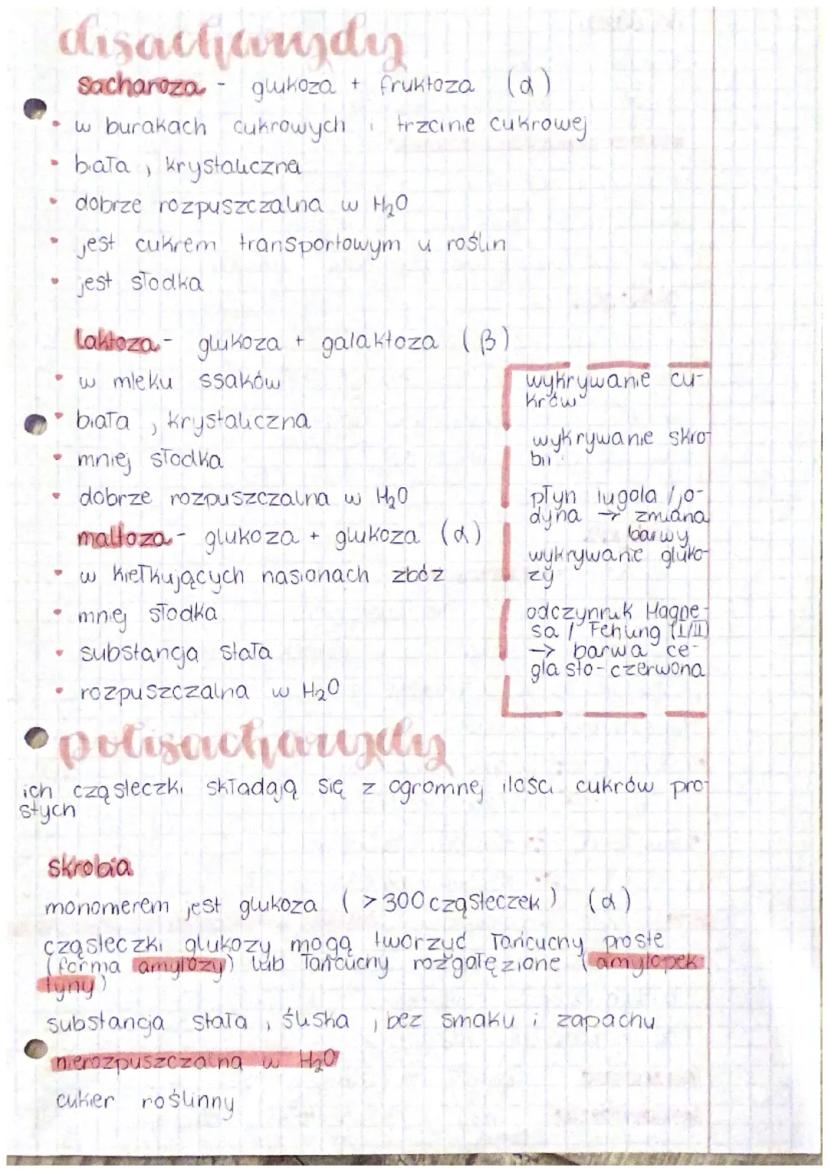 disacharydy
sacharoza - glukoza + fruktoza (α)
• w burakach cukrowych i trzcinie cukrowej
• biała, krystaliczna
• dobrze rozpuszczalna w H₂O
• jest cukrem transportowym u roślin
• jest słodka
laktoza - glukoza + galaktoza (β)
• w mleku ssaków
• biała, krystaliczna
• mniej słodka
• dobrze rozpuszczalna w H₂O
maltoza - glukoza + glukoza (α)
• w kiełkujących nasionach zbóż
• mnej słodka
• substancja stała
• rozpuszczalna w H₂O
wykrywanie cu-
krów
wykrywanie skro-
bii
płyn lugola / jo-
dyna → zmiana
barwy
wykrywanie gluko-
zy
odczynnik Hagne-
sa / Fehling (I/II)
→ barwa ce-
glasto-czerwona
polisacharydy
ich cząsteczki składają się z ogromnej ilości cukrów pro-
stych
skrobia
monomerem jest glukoza (>300 cząsteczek) (α)
cząsteczki glukozy mogą tworzyć łańcuchy proste
(forma amylozy) lub łańcuchy rozgałęzione (amylopek
tyny)
substancja stała, śliska, bez smaku i zapachu
nierozpuszczalna w H₂O
cukier roślinny